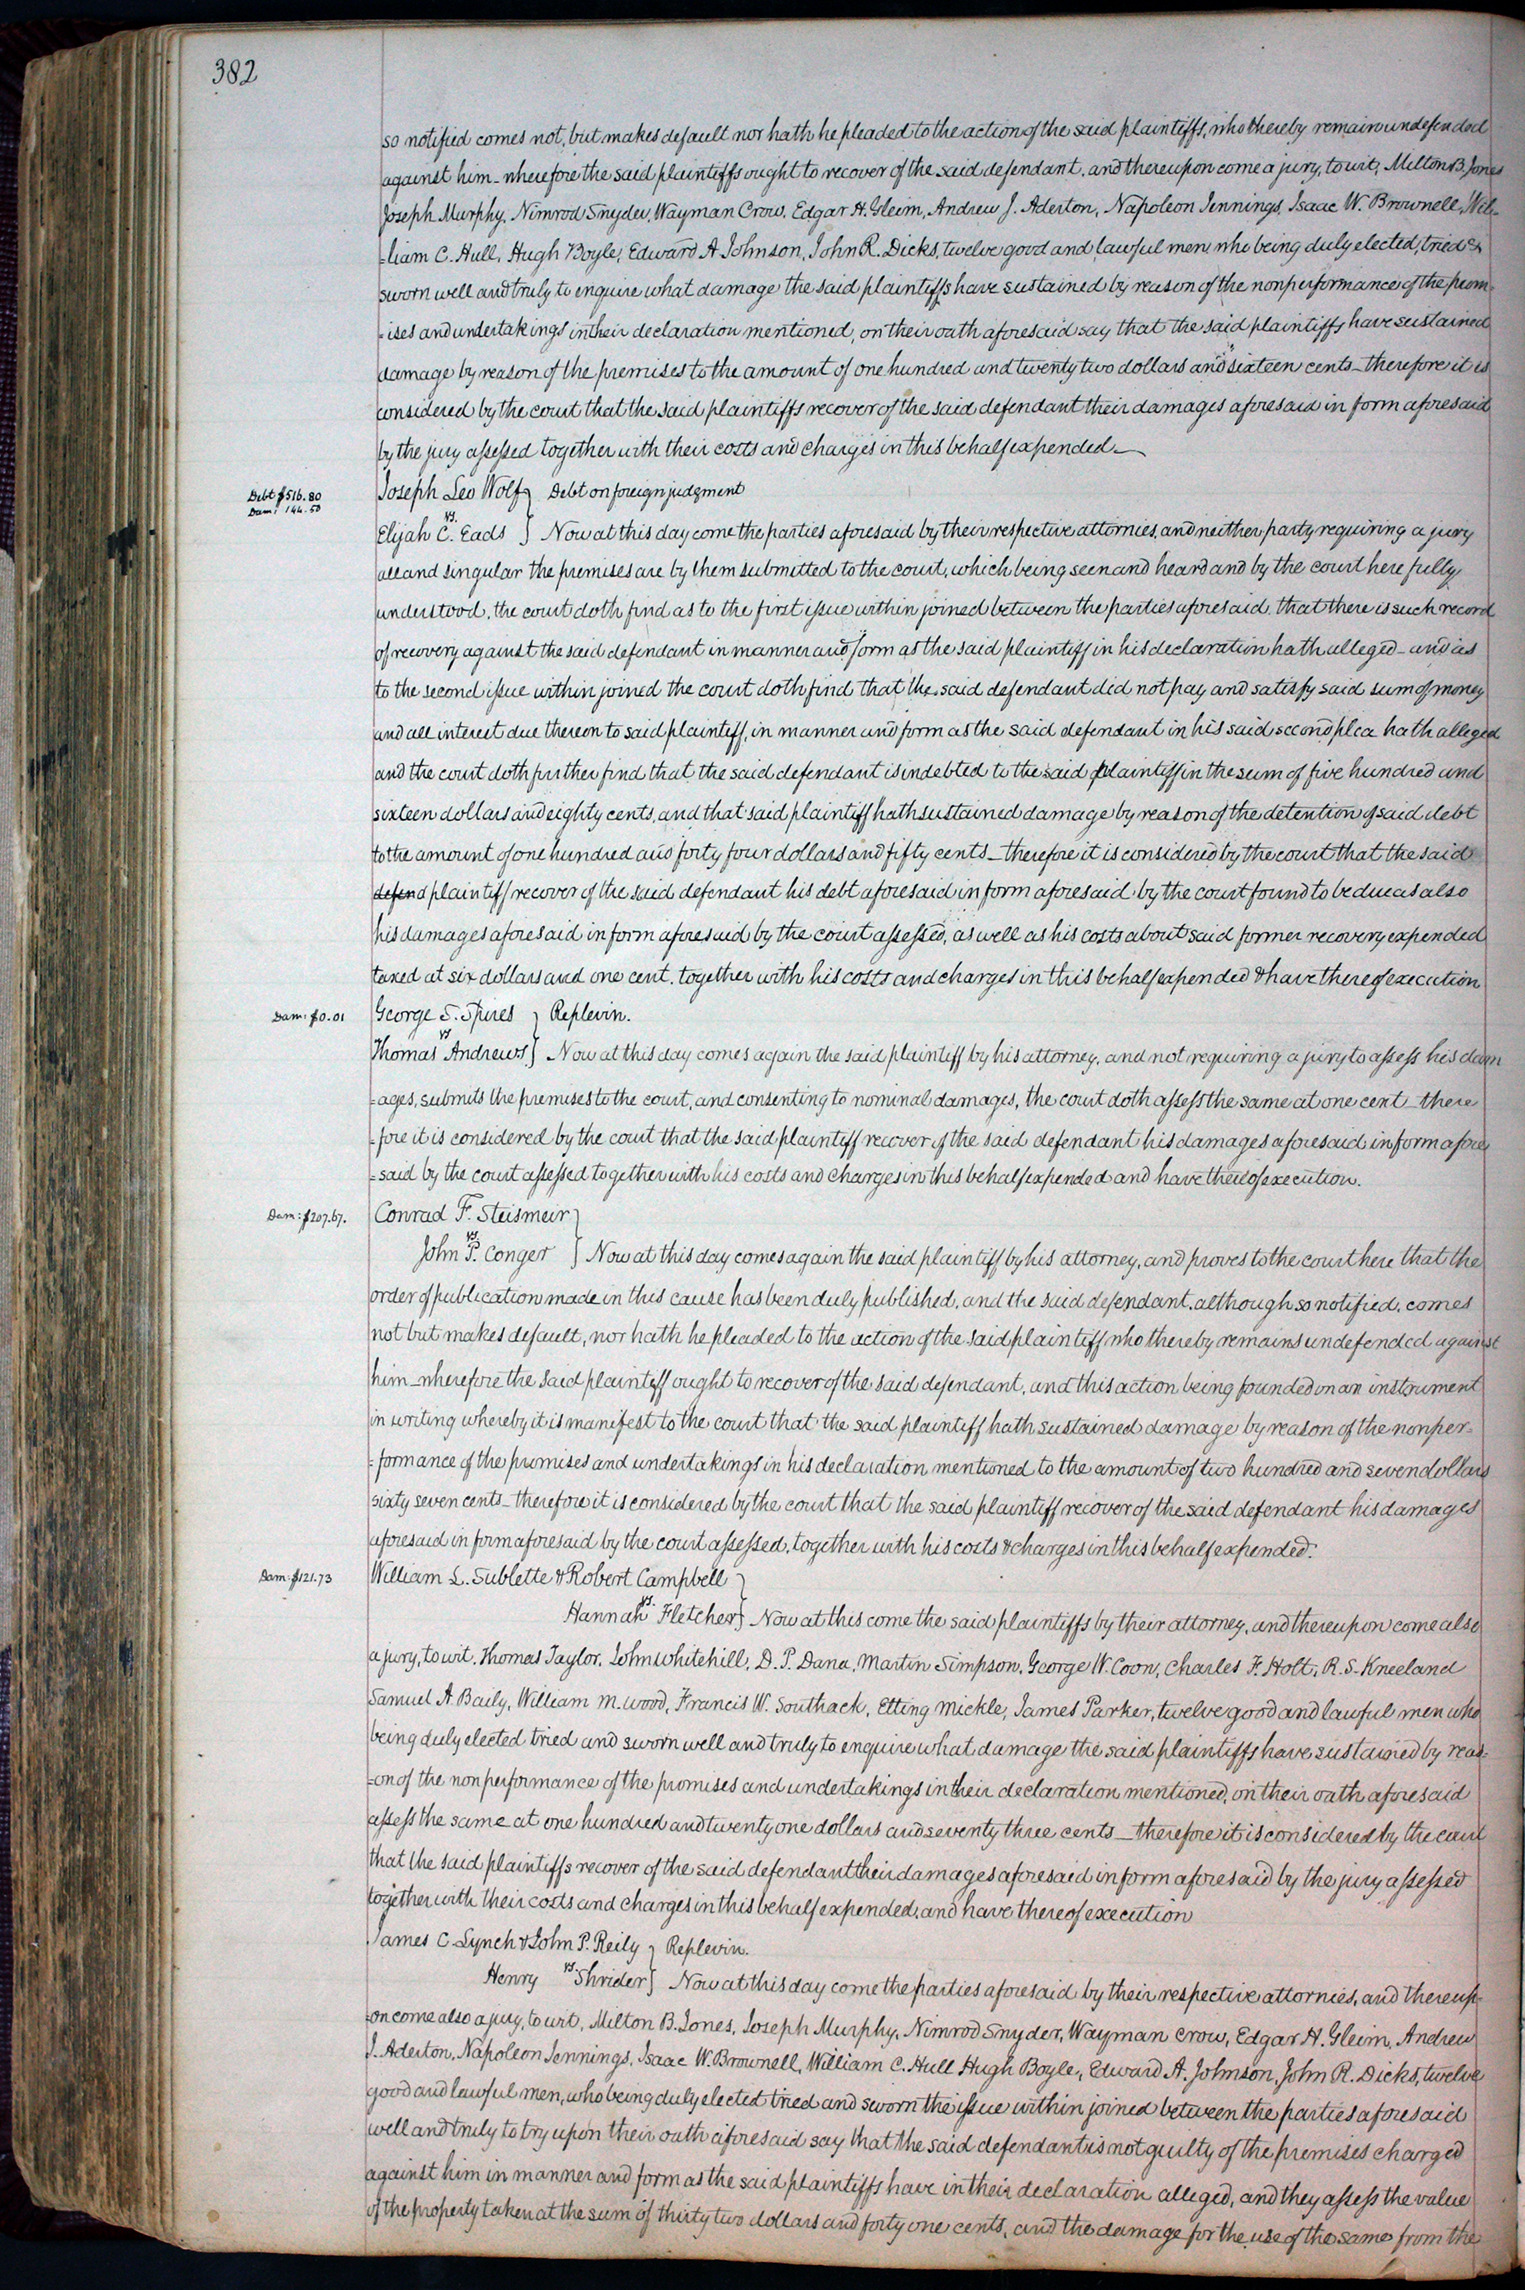 382
so notified comes not, but makes default nor hath he pleaded to the action of the said plaintiffs, who thereby remain undefended
against him_ wherefore the said plaintiffs ought to recover of the said defendant, and thereupon come a jury, to wit, Milton B. Jones
Joseph Murphy, Nimrod Snyder, Wayman Crow, Edgar H. Gleim, Andrew J. Aderton, Napoleon Jennings, Isaac W. Brownell, Wil-
=liam C. Hull, Hugh Boyle, Edward A Johnson, John R. Dicks, twelve good and lawful men who being duly elected, tried &
sworn well and truly to enquire what damage the said plaintiffs have sustained by reason of the nonperformance of the prom=
=ises and undertakings in their declaration mentioned, on their oath aforesaid say that the said plaintiffs have sustained
damage by reason of the premises to the amount of one hundred and twenty two dollars and sixteen cents_ therefore it is
considered by the court that the said plaintiffs recover of the said defendant their damages aforesaid in form aforesaid
by the jury assessed together with their costs and charges in this behalf expended_
Debt $516.80
Dam: 144.50
Joseph Leo Wolf } Debt on foreign judgment
vs.
Elijah C. Eads } Now at this day come the parties aforesaid by their respective attornies, and neither party requiring a jury
all and singular the premises are by them submitted to the court, which being seen and heard and by the court here fully
understood, the court doth find as to the first issue within joined between the parties aforesaid, that there is such record
of recovery against the said defendant in manner and form as the said plaintiff in his declaration hath alleged_ and as
to the second issue within joined the court doth find that the said defendant did not pay and satisfy said sum of money
and all interest due thereon to said plaintiff, in manner and form as the said defendant in his said second plea hath alleged
and the court doth further find that the said defendant is indebted to the said plaintiff in the sum of five hundred and
sixteen dollars and eighty cents, and that said plaintiff hath sustained damage by reason of the detention of said debt
to the amount of one hundred and forty four dollars and fifty cents_ therefore it is considered by the court that the said
defend plaintiff recover of the said defendant his debt aforesaid in form aforesaid by the court found to be due as also
his damages aforesaid in form aforesaid by the court assessed, as well as his costs about said former recovery expended
taxed at six dollars and one cent. together with his costs and charges in this behalf expended & have thereof execution
Dam: $0.01
George S. Spires } Replevin.
vs
Thomas Andrews } Now at this day comes again the said plaintiff by his attorney, and not requiring a jury to assess his dam
=ages, submits the premises to the court, and consenting to nominal damages, the court doth assess the same at one cent_ there
=fore it is considered by the court that the said plaintiff recover of the said defendant his damages aforesaid in form afore
=said by the court assessed together with his costs and charges in this behalf expended and have thereof execution.
Dam: $207.67.
Conrad F. Steismeir }
vs.
John P. Conger } Now at this day comes again the said plaintiff by his attorney, and proves to the court here that the
order of publication made in this cause has been duly published, and the said defendant, although so notified, comes
not but makes default, nor hath he pleaded to the action of the said plaintiff who thereby remains undefended against
him_ wherefore the said plaintiff ought to recover of the said defendant, and this action being founded on an instrument
in writing whereby it is manifest to the court that the said plaintiff hath sustained damage by reason of the nonper=
=formance of the promises and undertakings in his declaration mentioned to the amount of two hundred and seven dollars
sixty seven cents_ therefore it is considered by the court that the said plaintiff recover of the said defendant his damages
aforesaid in form aforesaid by the court assessed, together with his costs & charges in this behalf expended.
Dam: $121.73
William L. Sublette & Robert Campbell }
vs.
Hannah Fletcher } Now at this come the said plaintiffs by their attorney, and thereupon come also
a jury, to wit, Thomas Taylor, John Whitehill, D. P. Dana, Martin Simpson, George W. Coon, Charles F. Holt, R. S. Kneeland
Samuel A. Baily, William M. Wood, Francis W. Southack, Etting Mickle, James Parker, twelve good and lawful men who
being duly elected tried and sworn well and truly to enquire what damage the said plaintiffs have sustained by reas=
=on of the nonperformance of the promises and undertakings in their declaration mentioned, on their oath aforesaid
assess the same at one hundred and twenty one dollars and seventy three cents_ therefore it is considered by the court
that the said plaintiffs recover of the said defendant their damages aforesaid in form aforesaid by the jury assessed
together with their costs and charges in this behalf expended, and have thereof execution
James C. Lynch & John P. Reily } Replevin.
vs.
Henry Shrider } Now at this day come the parties aforesaid by their respective attornies, and thereup=
=on come also a jury, to wit, Milton B. Jones, Joseph Murphy, Nimrod Snyder, Wayman Crow, Edgar H. Gleim, Andrew
J. Aderton, Napoleon Jennings, Isaac W. Brownell, William C. Hull Hugh Boyle, Edward A. Johnson, John R. Dicks, twelve
good and lawful men, who being duly elected tried and sworn the issue within joined between the parties aforesaid
well and truly to try upon their oath aforesaid say that the said defendant is not guilty of the premises charged
against him in manner and form as the said plaintiffs have in their declaration alleged, and they assess the value
of the property taken at the sum of thirty two dollars and forty one cents, and the damage for the use of the same from the